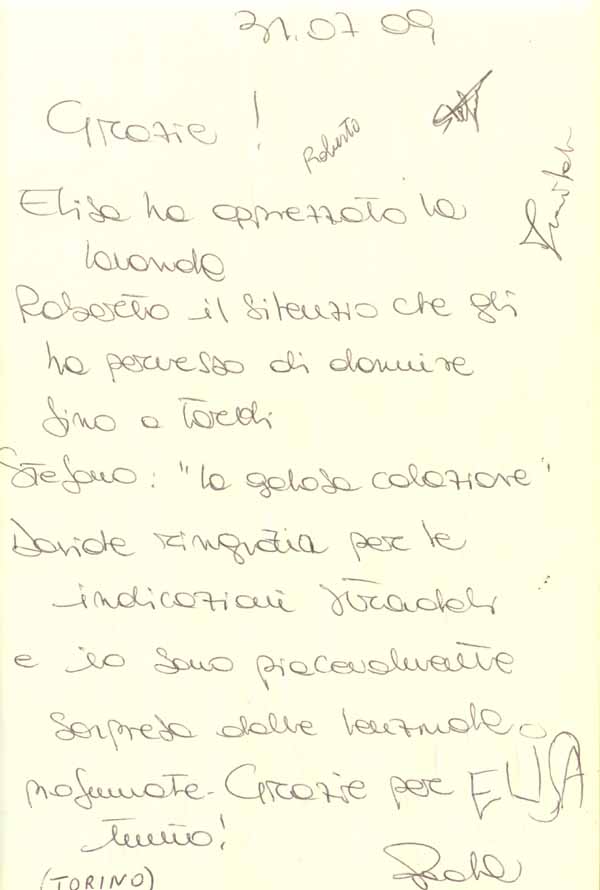 31.07 09
Grazie!
Roberto
Elisa ha apprezzato la
lavanda
Roberto il silenzio che gli
ha permesso di dormire
fino a tardi
Stefano: "la golosa colazione"
Davide ringrazia per le
indicazioni stradali
e io sono piacevolmente
sorpresa dalle lenzuola
profumate. Grazie per
ELISA
tutto!
(TORINO)
Paola